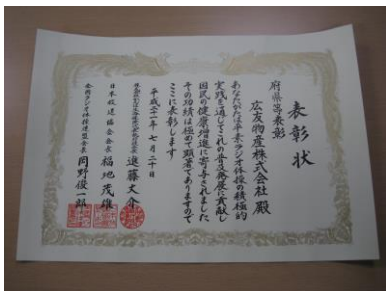 表彰状
府県等表彰
広友物産株式会社殿
あなたがたは平素ラジオ体操の積極的
実践を通じてこれの普及発展に貢献し
国民の健康増進に寄与されました
その功績は極めて顕著でありますので
ここに表彰します
平成二十一年七月二十日
進藤丈介
日本放送協会会長 福地茂雄
全国ラジオ体操連盟会長 岡野俊一郎